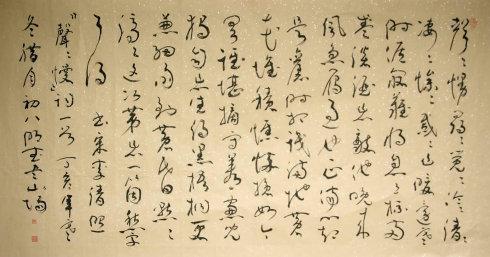 聲〻慢尋〻覓〻冷〻清〻
淒〻慘〻戚〻乍暖還寒
時候最難將息三杯兩
盞淡酒怎敵他晚來
風急雁過也正傷心卻
是舊時相識滿地黃
花堆積憔悴損如今
有誰堪摘守著窗兒
獨自怎生得黑梧桐更
兼細雨到黃昏點〻
滴〻這次第怎一個愁字
了得 書宋李清照
『聲〻慢』詞一首 丁亥年寒
冬腊月初八